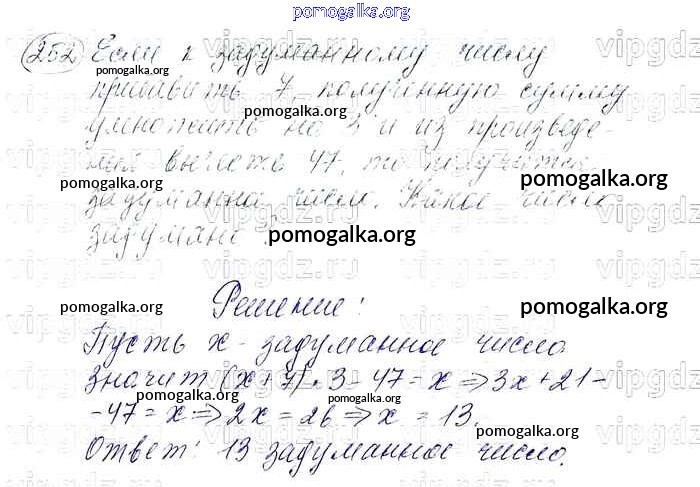 pomogalka.org
252 Если к задуманному числу
pomogalka.org
прибавить 7, полученную сумму
pomogalka.org
умножить на 3 и из произведе-
ния вычесть 47, то получится
pomogalka.org pomogalka.org
задуманное число. Какое число
задумано?
pomogalka.org
vipgdz.ru
Решение:
pomogalka.org pomogalka.org
Пусть x - задуманное число.
pomogalka.org
Значит (x+7)·3-47=x⇒3x+21-
pomogalka.org pomogalka.org
-47=x⇒2x=26⇒x=13.
pomogalka.org
Ответ: 13 задуманное число.
pomogalka.org pomogalka.org